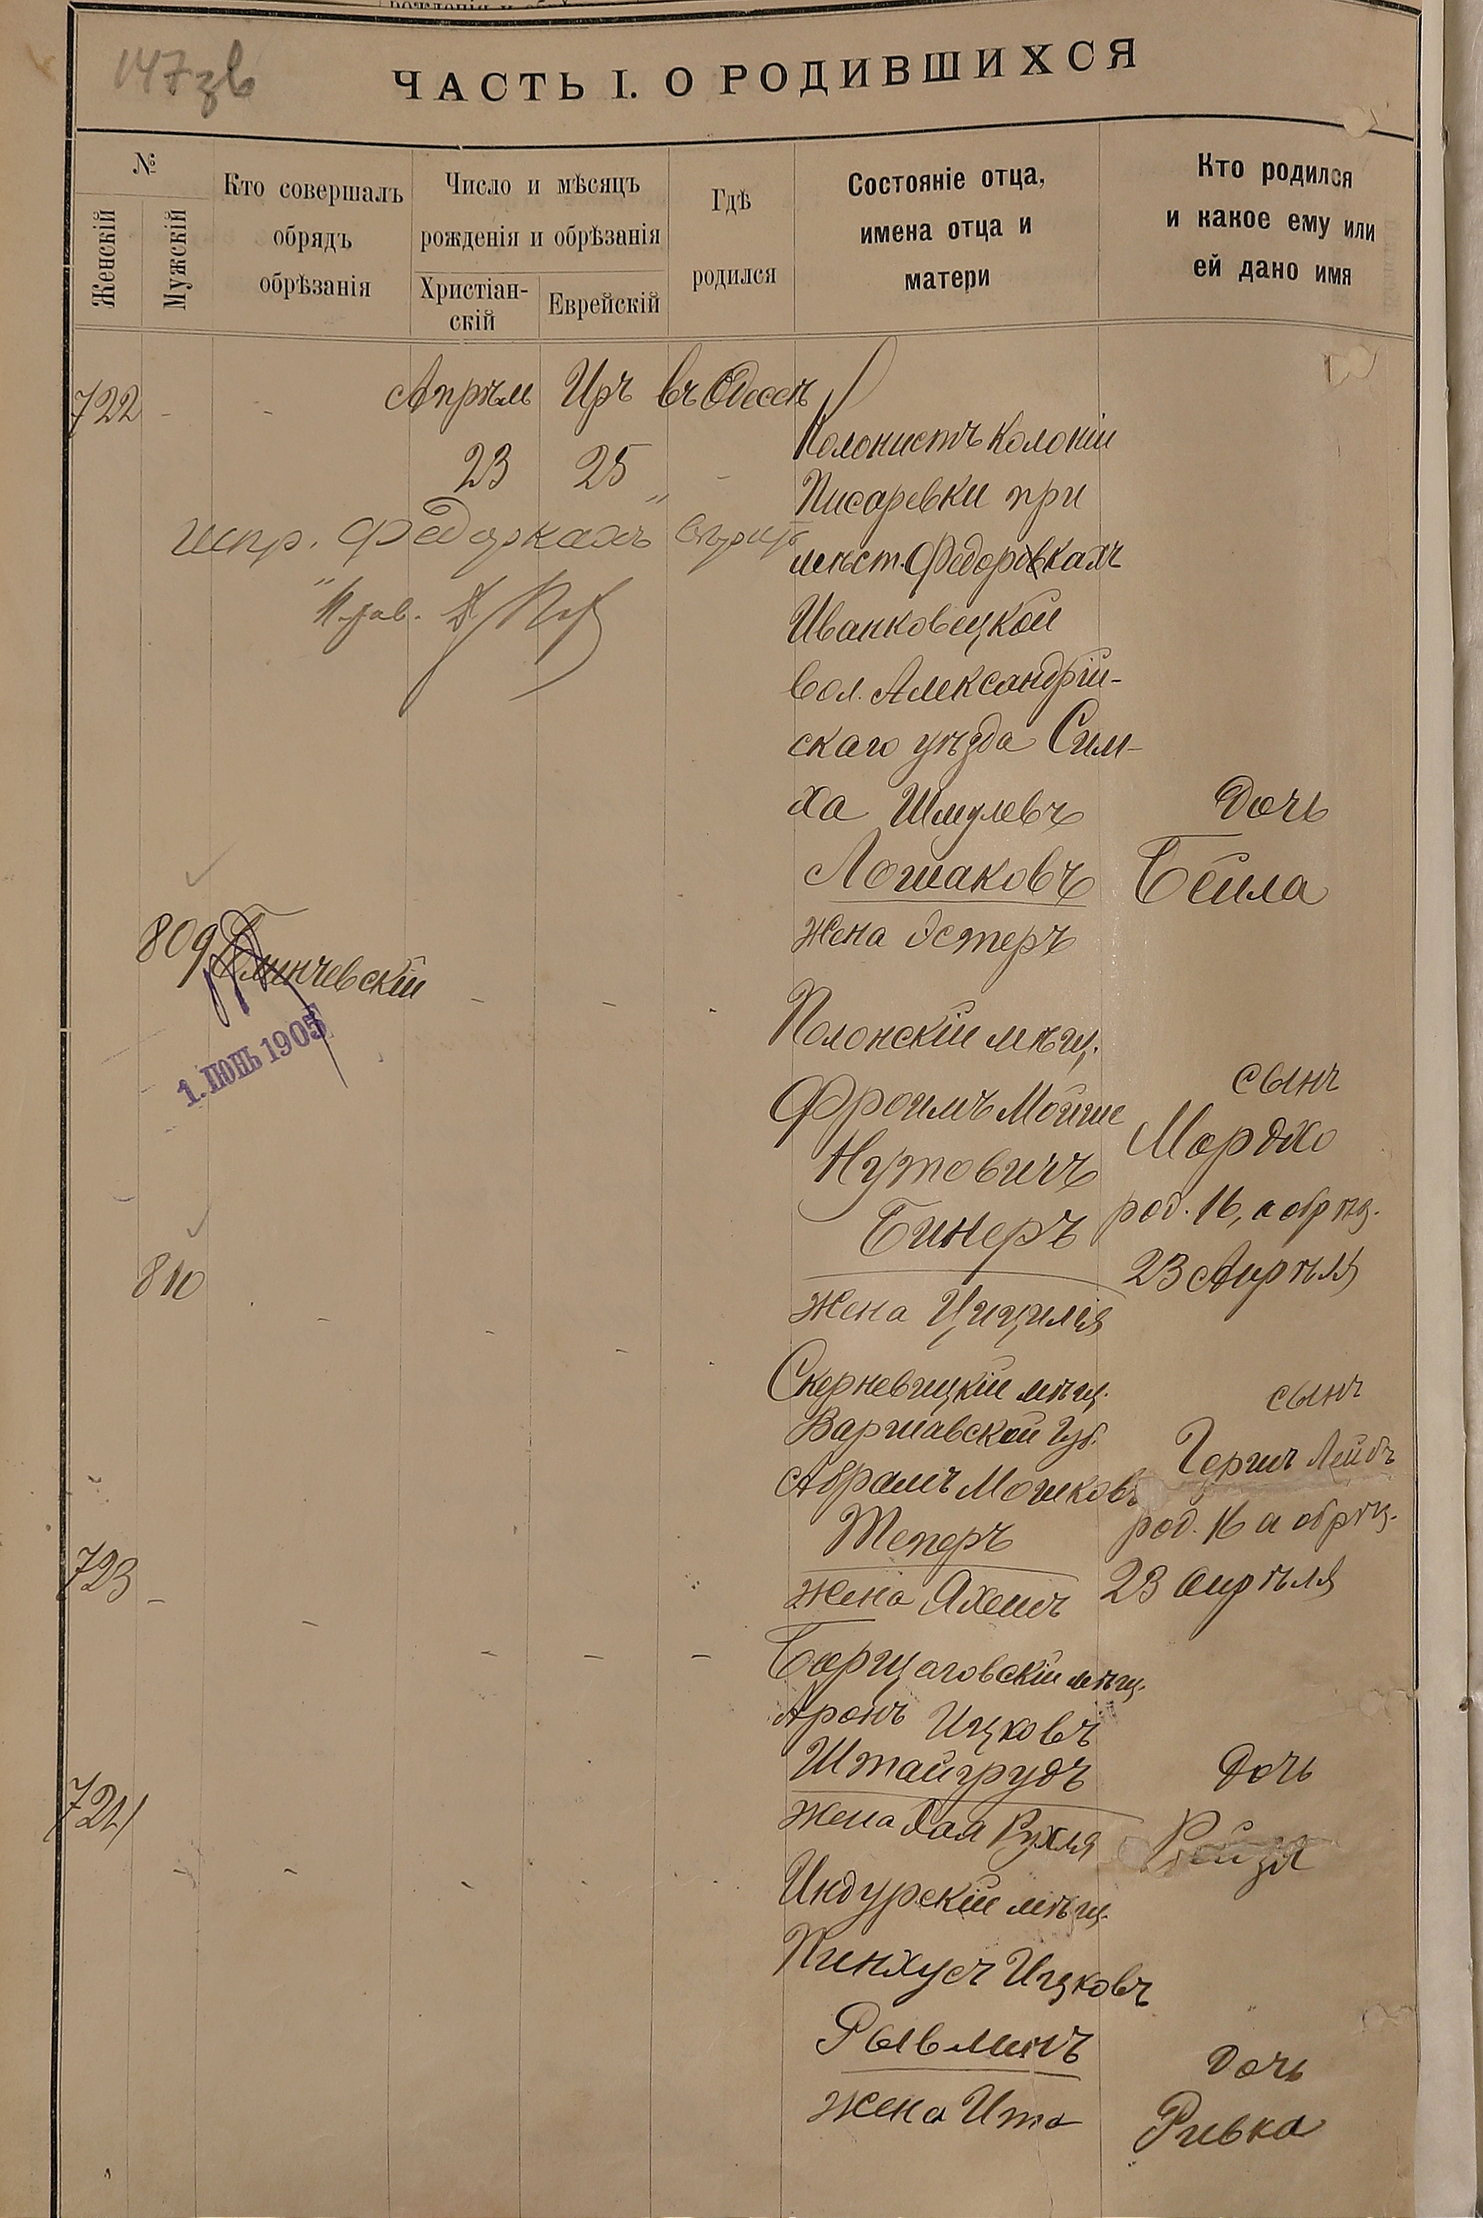 147 зв
ЧАСТЬ I. О РОДИВШИХСЯ
№
Женскій
Мужскій
Кто совершалъ
обрядъ
обрѣзанія
Число и мѣсяцъ
рожденія и обрѣзанія
Христіан-
скій
Еврейскій
Гдѣ
родился
Состояніе отца,
имена отца и
матери
Кто родился
и какое ему или
ей дано имя
722 - - Апрѣль Иръ въ Одессѣ
23 25 -
Колонистъ колоніи
Писаревки при
мѣст. Федоровкахъ
Иванковецкой
вол. Александрій-
скаго уѣзда Сим-
ха Шмулевъ
Лошаковъ
жена Эстеръ
Дочь
Бейла
испр. „Федоркахъ"
809
1. ІЮНЬ 1905
Полонскій мѣщ.
Фроимъ Мойше
Нутовичъ
Бинеръ
жена Цицилія
сынъ
Мордко
род. 16, а обрѣз.
23 Апрѣля
810 - - - -
Скерневицкій мѣщ.
Варшавской Губ.
Абрамъ Мошковъ
Теперъ
жена
сынъ
Гершъ Лейбъ
род. 16 а обрѣз.
23 апрѣля
723 - - - - -
Борщаговскій мѣщ.
Аронъ Ицковъ
Штайгрудъ
жена Хая Рухля
Дочь
Рейзя
724 - - - - -
Индурскій мѣщ.
Пинхусъ Ицковъ
жена Ита
Дочь
Ривка